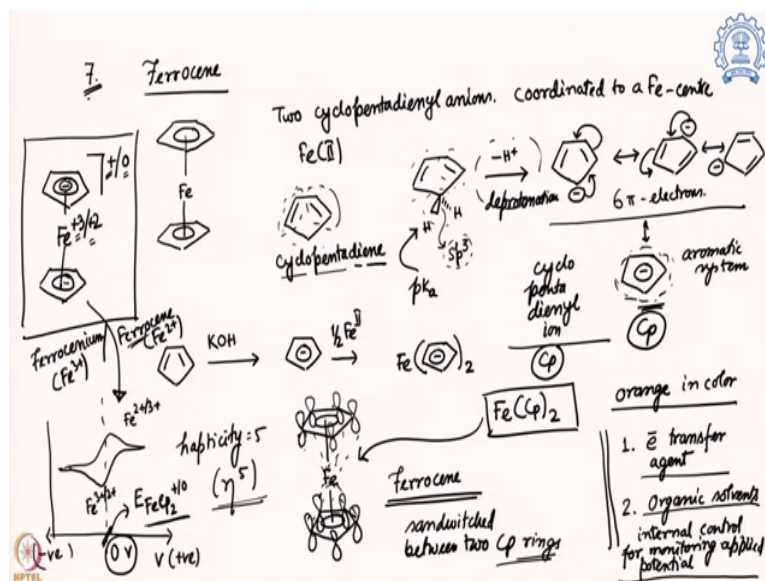 7. Ferrocene
Two cyclopentadienyl anions. coordinated to a Fe-centre
Fe(II)
Fe
+/0
Fe+3/+2
cyclopentadiene
H
H
sp3
pKa
-H+
deprotonation
6π-electrons.
aromatic system
Cp
cyclo
penta
dienyl
ion
Cp
Ferrocenium (Fe3+)
Ferrocene (Fe2+)
KOH
½FeII
Fe( )2
Fe(Cp)2
orange in color
1. ē transfer
agent
2. Organic solvents
internal control
for monitoring applied
potential
Fe2+/3+
Fe3+/2+
EFeCp2+/0
0 V
(-ve)
V (+ve)
hapticity=5
(η5)
Fe
Ferrocene
sandwitched
between two Cp rings
NPTEL